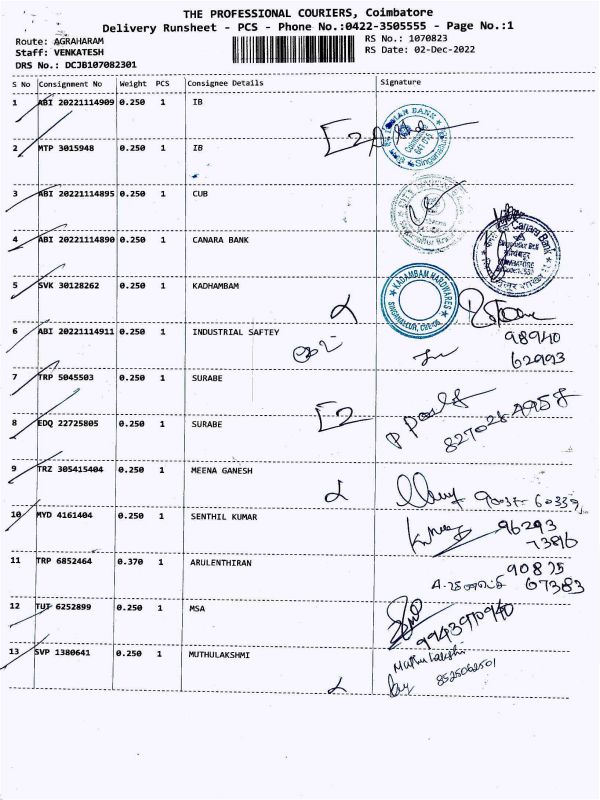 THE PROFESSIONAL COURIERS, Coimbatore
Delivery Runsheet - PCS - Phone No.:0422-3505555 - Page No.:1
Route: AGRAHARAM RS No.: 1070823
Staff: VENKATESH RS Date: 02-Dec-2022
DRS No.: DCJB107082301
S No Consignment No Weight PCS Consignee Details Signature
1 ABI 20221114909 0.250 1 IB
INDIAN BANK
2 MTP 3015948 0.250 1 IB
E2
3 ABI 20221114895 0.250 1 CUB
4 ABI 20221114890 0.250 1 CANARA BANK
Canara Bank
5 SVK 30128262 0.250 1 KADHAMBAM
KADAMBAM HARDWARES
6 ABI 20221114911 0.250 1 INDUSTRIAL SAFTEY
98940
62993
7 TRP 5045503 0.250 1 SURABE
8 EDQ 22725805 0.250 1 SURABE
E2
9 TRZ 305415404 0.250 1 MEENA GANESH
10 MYD 4161404 0.250 1 SENTHIL KUMAR
96293
11 TRP 6852464 0.370 1 ARULENTHIRAN
67383
12 TUT 6252899 0.250 1 MSA
9943970940
13 SVP 1380641 0.250 1 MUTHULAKSHMI
Muthu Lakshmi
8525062501